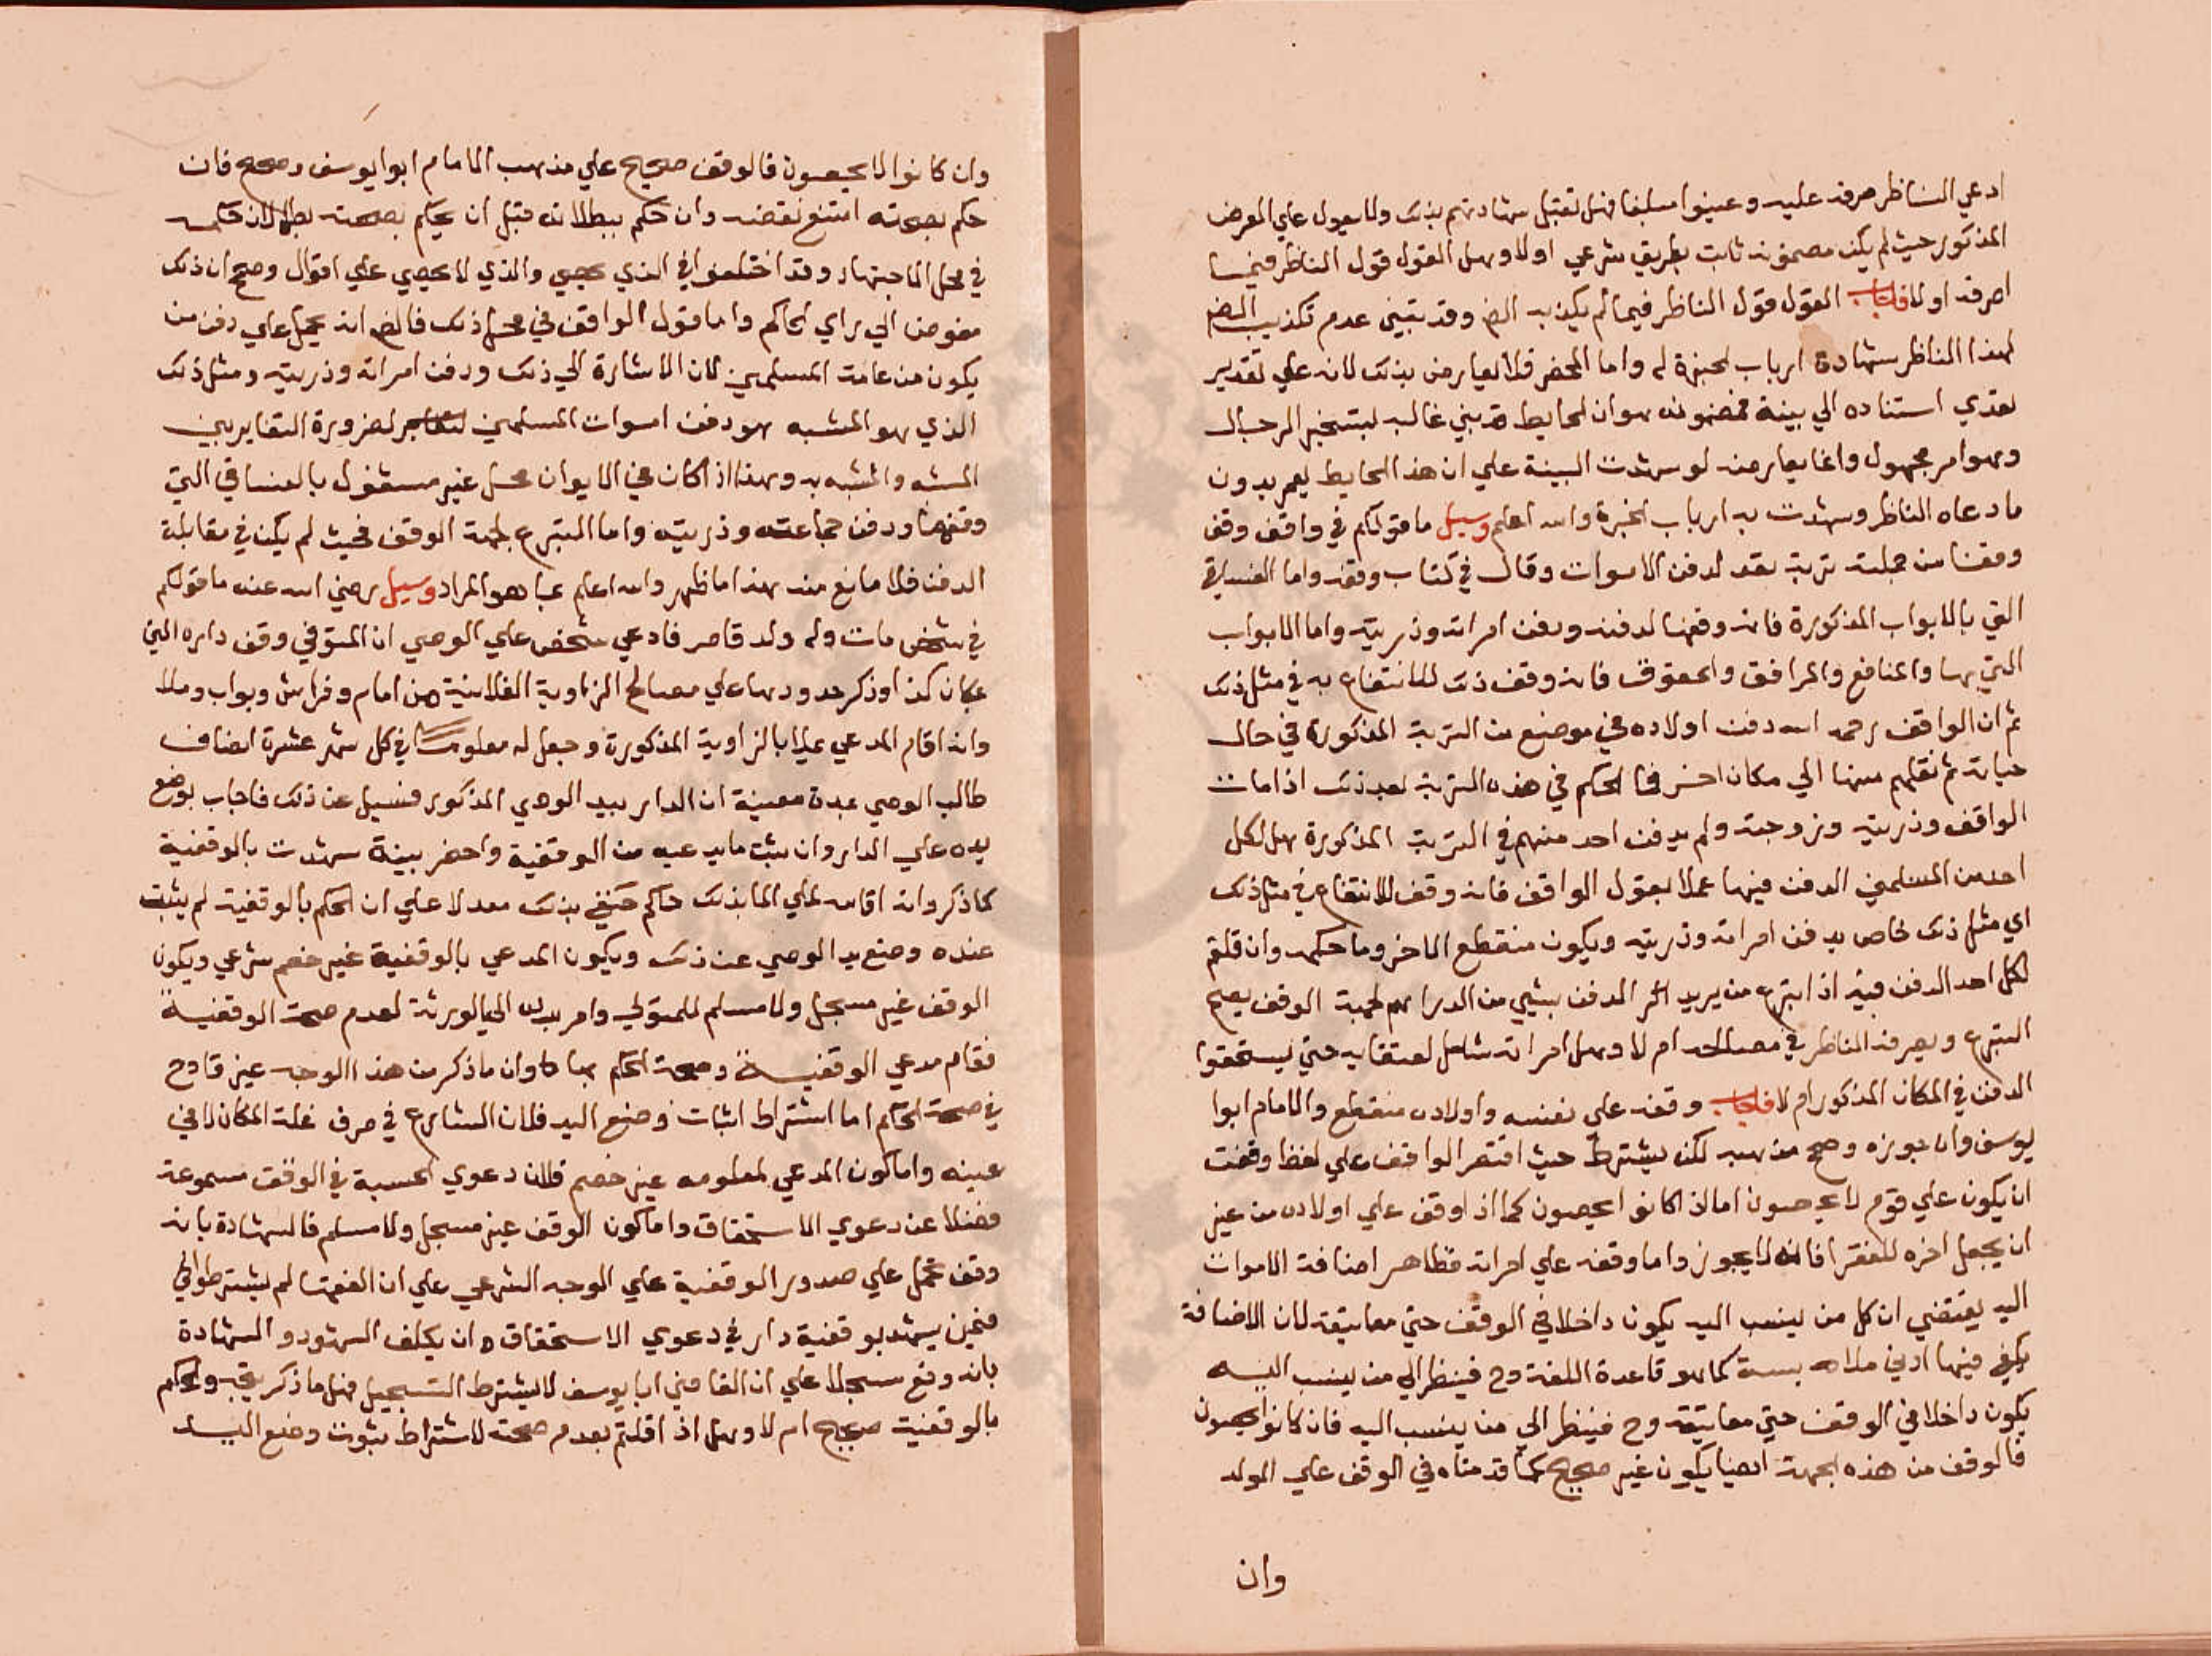 ادعي الناظر صرفه عليه وعينوا مبلغا فهل تقبل شهادتهم بذلك ولا يعول علي المعرض
المذكور حيث لم يكن مضمونه ثابت بطريق شرعي اولا وهل القول قول الناظر فيما
اصرفه اولا فاجاب القول قول الناظر فيما لم يكذبه الض وقد تبين عدم تكذيب الض
لهذا الناظر بشهادة ارباب الخبرة له واما المحضر فلا يعارض بذلك لانه علي تقدير
تعدي استناده الي بينة فمضمونه هو ان الحايط مبني غالبه
وهو امر مجهول وانما يعارضه لو شهدت البينة علي ان هذا الحايط يعمر بدون
ما دعاه الناظر وشهدت به ارباب الخبرة والله اعلم وسيل ما قولكم في واقف وقف
وقفا من جملته تربة تعد لدفن الاموات وقال في كتاب وقفه واما الفساقي
التي بالابواب المذكورة فانه وقفها لدفنه ودفن امراته وذريته واما الابواب
التي بها والمنافع والمرافق والحقوق فانه وقف ذلك للانتفاع به في مثل ذلك
ثم ان الواقف رحمه الله دفن اولاده في موضع من التربة المذكورة في حال
حياته ثم نقلهم منها الي مكان اخر فما الحكم في هذه التربة بعد ذلك اذا مات
الواقف وذريته وزوجته ولم يدفن احد منهم في التربة المذكورة هل لكل
احد من المسلمين الدفن فيها عملا بقول الواقف فانه وقف للانتفاع في مثل ذلك
اي مثل ذلك خاص بدفن امراته وذريته ويكون منقطع الاخر وما حكمه وان قلتم
لكل احد الدفن فيه اذا تبرع من يريد الدفن بشيي من الدراهم لجهة الوقف يصح
التبرع ويصرفه الناظر في مصالحه ام لا وهل امراته شامل لعتقايه حتي يستحقوا
الدفن في المكان المذكور ام لا فاجاب وقفه علي نفسه واولاده منقطع والامام ابوا
يوسف وان جوزه وصح مذهبه لكن يشترط حيث اقتصر الواقف علي لفظ وقفت
ان يكون علي قوم لا يحصون اما اذا كانوا يحصون كما اذا وقف علي اولاده من غير
ان يجعل اخره للفقرا فانه لا يجوز واما وقفه علي امراته فظاهر اضافة الاموات
اليه يقتضي ان كل من ينسب اليه يكون داخلا في الوقف حتي معاتيقه لان الاضافة
يكفي فيها ادني ملابسة كما هو قاعدة اللغة وح فينظر الي من ينسب اليه
يكون داخلا في الوقف حتي معاتيقه وح فينظر الي من ينسب اليه فان كانوا يحصون
فالوقف من هذه الجهة ايضا يكون غير صحيح كما قدمناه في الوقف علي الولد
وان
وان كانوا لا يحصون فالوقف صحيح علي مذهب الامام ابوا يوسف وصحح فان
حكم بصحته امتنع نقضه وان حكم ببطلانه قبل ان يحكم بصحته بطل لان حكمه
في محل الاجتهاد وقد اختلفوا في الذي يحصي والذي لا يحصي علي اقوال وصحح ان ذلك
مفوض الي راي الحاكم واما قول الواقف في مثل ذلك فالض انه يحمل علي دفن من
يكون من عامة المسلمين لان الاشارة الي ذلك ودفن امراته وذريته ومثل ذلك
الذي هو المشبه هو دفن اموات المسلمين لضرورة التغاير بين
المشبه والمشبه به وهذا اذا كان في الايوان محل غير مشغول بالفساقي التي
وقفها ودفن جماعته وذريته واما المتبرع لجهة الوقف فحيث لم يكن في مقابلة
الدفن فلا مانع منه هذا ما ظهر والله اعلم بما هو المراد وسيل رضي الله عنه ما قولكم
في شخص مات وله ولد قاصر فادعي شخص علي الوصي ان المتوفي وقف داره التي
بمكان كذا وذكر حدودها علي مصالح الزاوية الفلانية من امام وفراش وبواب وملا
وانه اقام المدعي ملا بالزاوية المذكورة وجعل له معلوما في كل شهر عشرة انصاف
طالب الوصي بمدة معينة ان الدار بيد الوصي المذكور فسيل عن ذلك فاجاب بوضع
يده علي الدار وان يثبت ما يدعيه من الوقفية واحضر بينة شهدت بالوقفية
كما ذكر وانه اقامه لملي الما بذلك حاكم حنفي بذلك معولا علي ان الحكم بالوقفية لم يثبت
عنده وضع يد الوصي عن ذلك ويكون المدعي بالوقفية غير خصم شرعي ويكون
الوقف غير مسجل ولا مسلم للمتولي وامر الي الورثة لعدم صحة الوقفية
فقام مدعي الوقفية وصحة الحكم بها وان ما ذكر من هذا الوجه غير قادح
في صحة الحكم اما اشتراط اثبات وضع اليد فلان الشارع في صرف غلة المكان لا في
عينه واما كون المدعي لمعلومه غير خصم فلان دعوي الحسبة في الوقف مسموعة
فضلا عن دعوي الاستحقاق واما كون الوقف غير مسجل ولا مسلم فالشهادة بانه
وقف تحمل علي صدور الوقفية علي الوجه الشرعي علي ان الفقها لم يشترطوا في
فيمن يشهد بوقفية دار في دعوي الاستحقاق ان يكلف الشهود والشهادة
بانه وقع مسجلا علي ان القاضي ابا يوسف لا يشترط التسجيل فهل ما ذكر يجب والحكم
بالوقفية صحيح ام لا وهل اذا قلتم بعدم صحته لاشتراط ثبوت وضع اليد